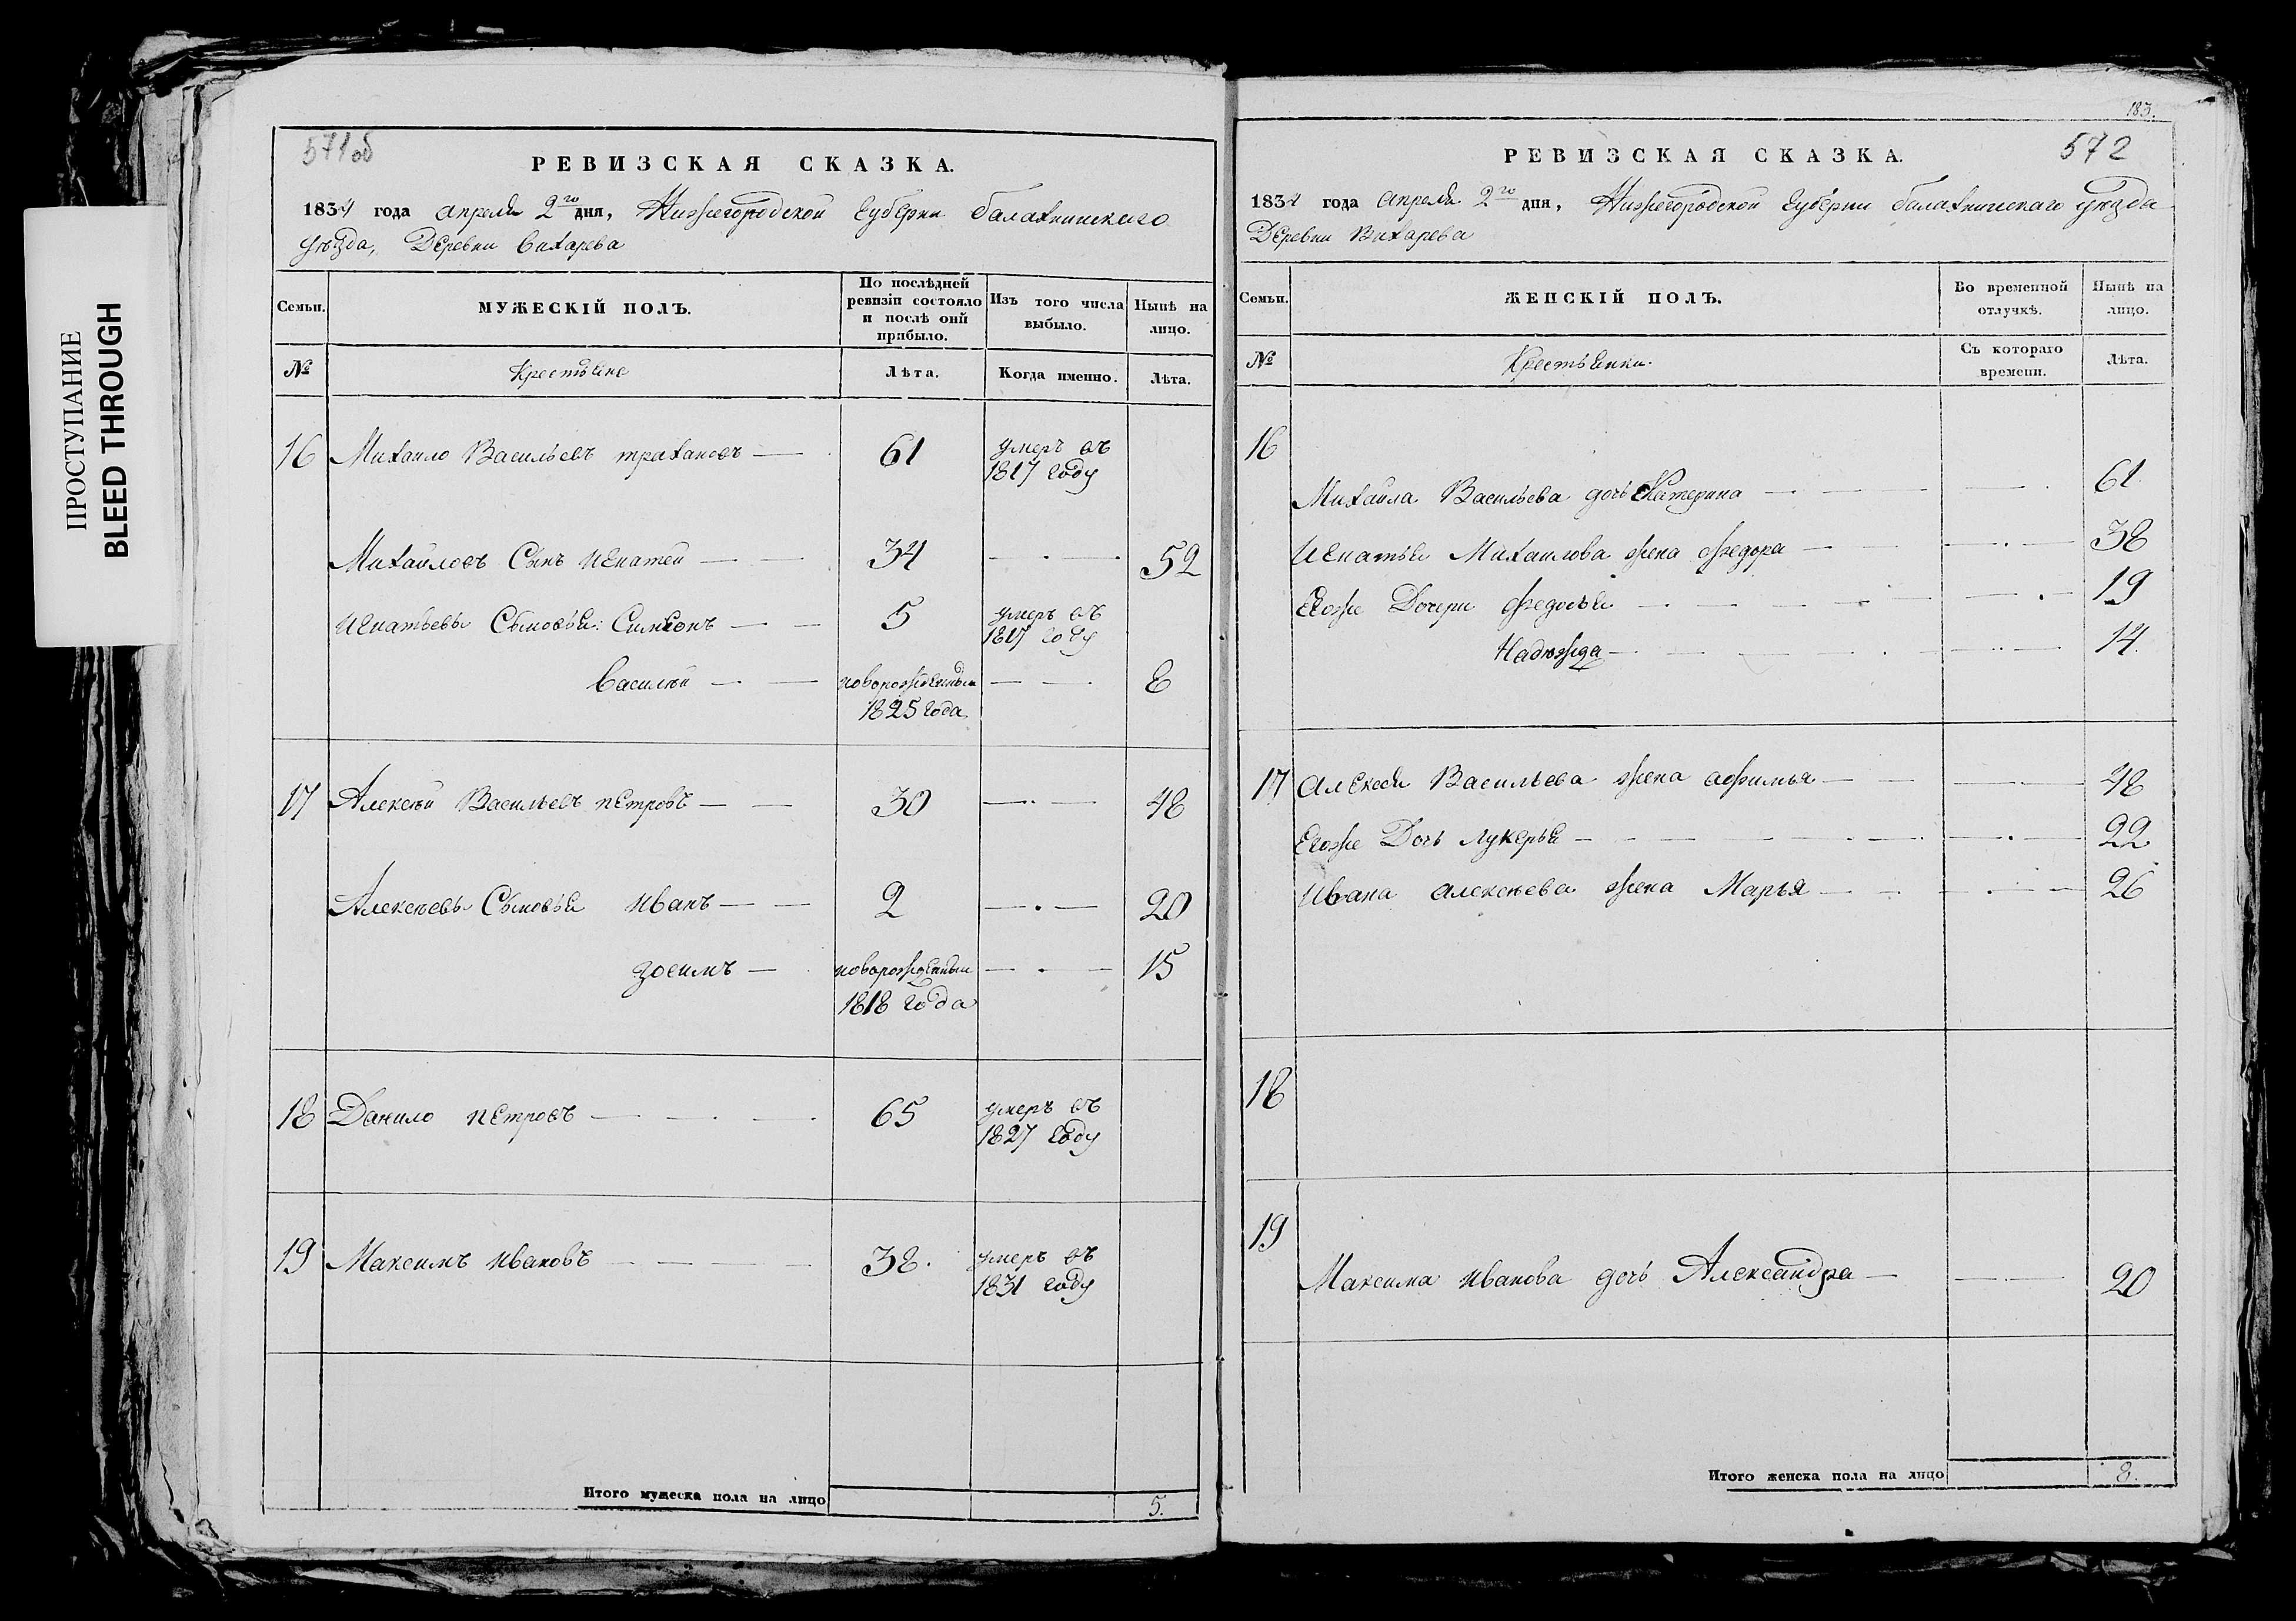 ПРОСТУПАНИЕ
BLEED THROUGH
571об
РЕВИЗСКАЯ СКАЗКА.
1834 года апреля 2го дня, Нижегородской Губернии балахнинского
уѣзда, Деревни вихарева
Семьи.
МУЖЕСКІЙ ПОЛЪ.
По послѣдней
ревизіи состояло
и послѣ оній
прибыло.
Изъ того числа
выбыло.
Нынѣ на
лицо.
№
Крестьяне
Лѣта.
Когда именно.
Лѣта.
16 Михаило Васильевъ трахановъ 61 умеръ въ
1817 году
Михайловъ Сынъ игнатей 34 52
игнатьевы Сыновья: Симеонъ 5 умеръ въ
1817 году
василей новорожденный 8
1825 года
17 Алексѣй Васильевъ петровъ 30 48
Алексѣевы Сыновья иванъ 2 20
зосимъ новорожденный 15
1818 года
18 Данило петровъ 65 умеръ въ
1827 году
19 Максимъ ивановъ 38. умеръ въ
1831 году
Итого мужеска пола на лицо 5.
183.
572
РЕВИЗСКАЯ СКАЗКА.
1834 года апреля 2го дня, Нижегородской Губернии балахнинскаго уѣзда
Деревни Вихарева
Семьи.
ЖЕНСКІЙ ПОЛЪ.
Во временной
отлучкѣ.
Нынѣ на
лицо.
№
Крестьянки.
Съ котораго
времени.
Лѣта.
16
Михаила Васильева дочь Катерина 61
игнатья Михаилова жена федора 38
Егоже Дочери федосья 19
Надежда 14.
17 алексея Васильева жена афимья 48
Егоже Дочь лукерья 22
ивана алексѣева жена Марья 26
18
19
Максима иванова дочь Александра 20
Итого женска пола на лицо 8.